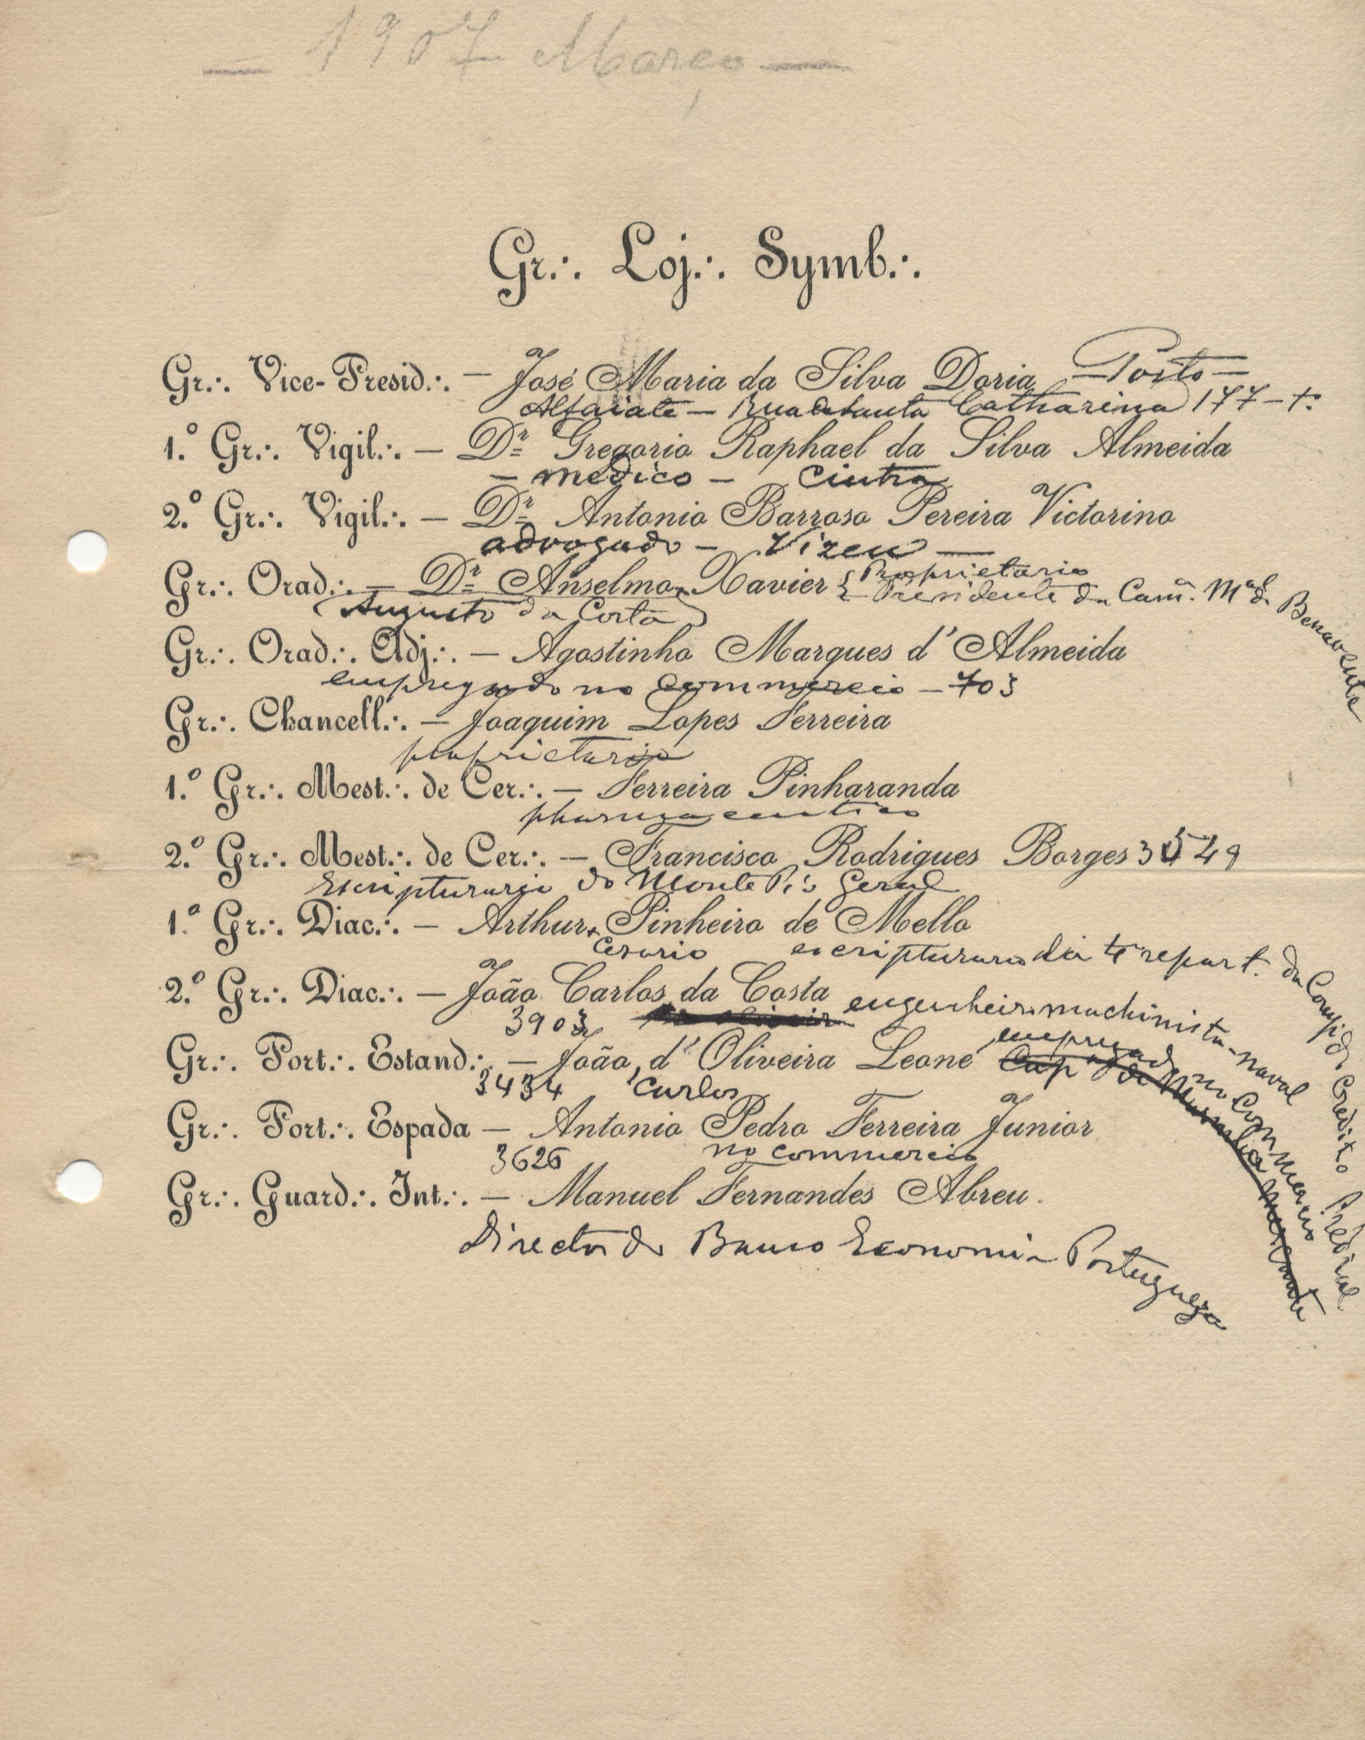 — 1907 Março —
Gr.·. Loj.·. Symb.·.
Gr.·. Vice-Presid.·. — José Maria da Silva Doria — Porto —
Alfaiate — Rua de Santa Catharina 177 — 1º
1.º Gr.·. Vigil.·. — Dr. Gregorio Raphael da Silva Almeida
— medico — Cintra
2.º Gr.·. Vigil.·. — Dr. Antonio Barroso Pereira Victorino
advogado — Vizeu —
Gr.·. Orad.·. — Dr. Anselmo Xavier { Proprietario
Presidente da Cam.ª M.al de Benavente
(Augusto da Costa)
Gr.·. Orad.·. Adj.·. — Agostinho Marques d'Almeida
empregado no commercio — 703
Gr.·. Chancell.·. — Joaquim Lopes Ferreira
proprietario
1.º Gr.·. Mest.·. de Cer.·. — Ferreira Pinharanda
pharmaceutico
2.º Gr.·. Mest.·. de Cer.·. — Francisco Rodrigues Borges
Escripturario do Monte Pio Geral
1.º Gr.·. Diac.·. — Arthur Pinheiro de Mello
Cesario escripturario da repart. da Comp. de Credito Predial
2.º Gr.·. Diac.·. — João Carlos da Costa engenheiro machinista naval
3903
Gr.·. Port.·. Estand.·. — João d'Oliveira Leone empregado no Commercio
3434 Carlos Cap. da Marinha mercante
Gr.·. Port.·. Espada — Antonio Pedro Ferreira Junior
3626 no commercio
Gr.·. Guard.·. Int.·. — Manuel Fernandes Abreu.
Director do Banco Economia Portugueza